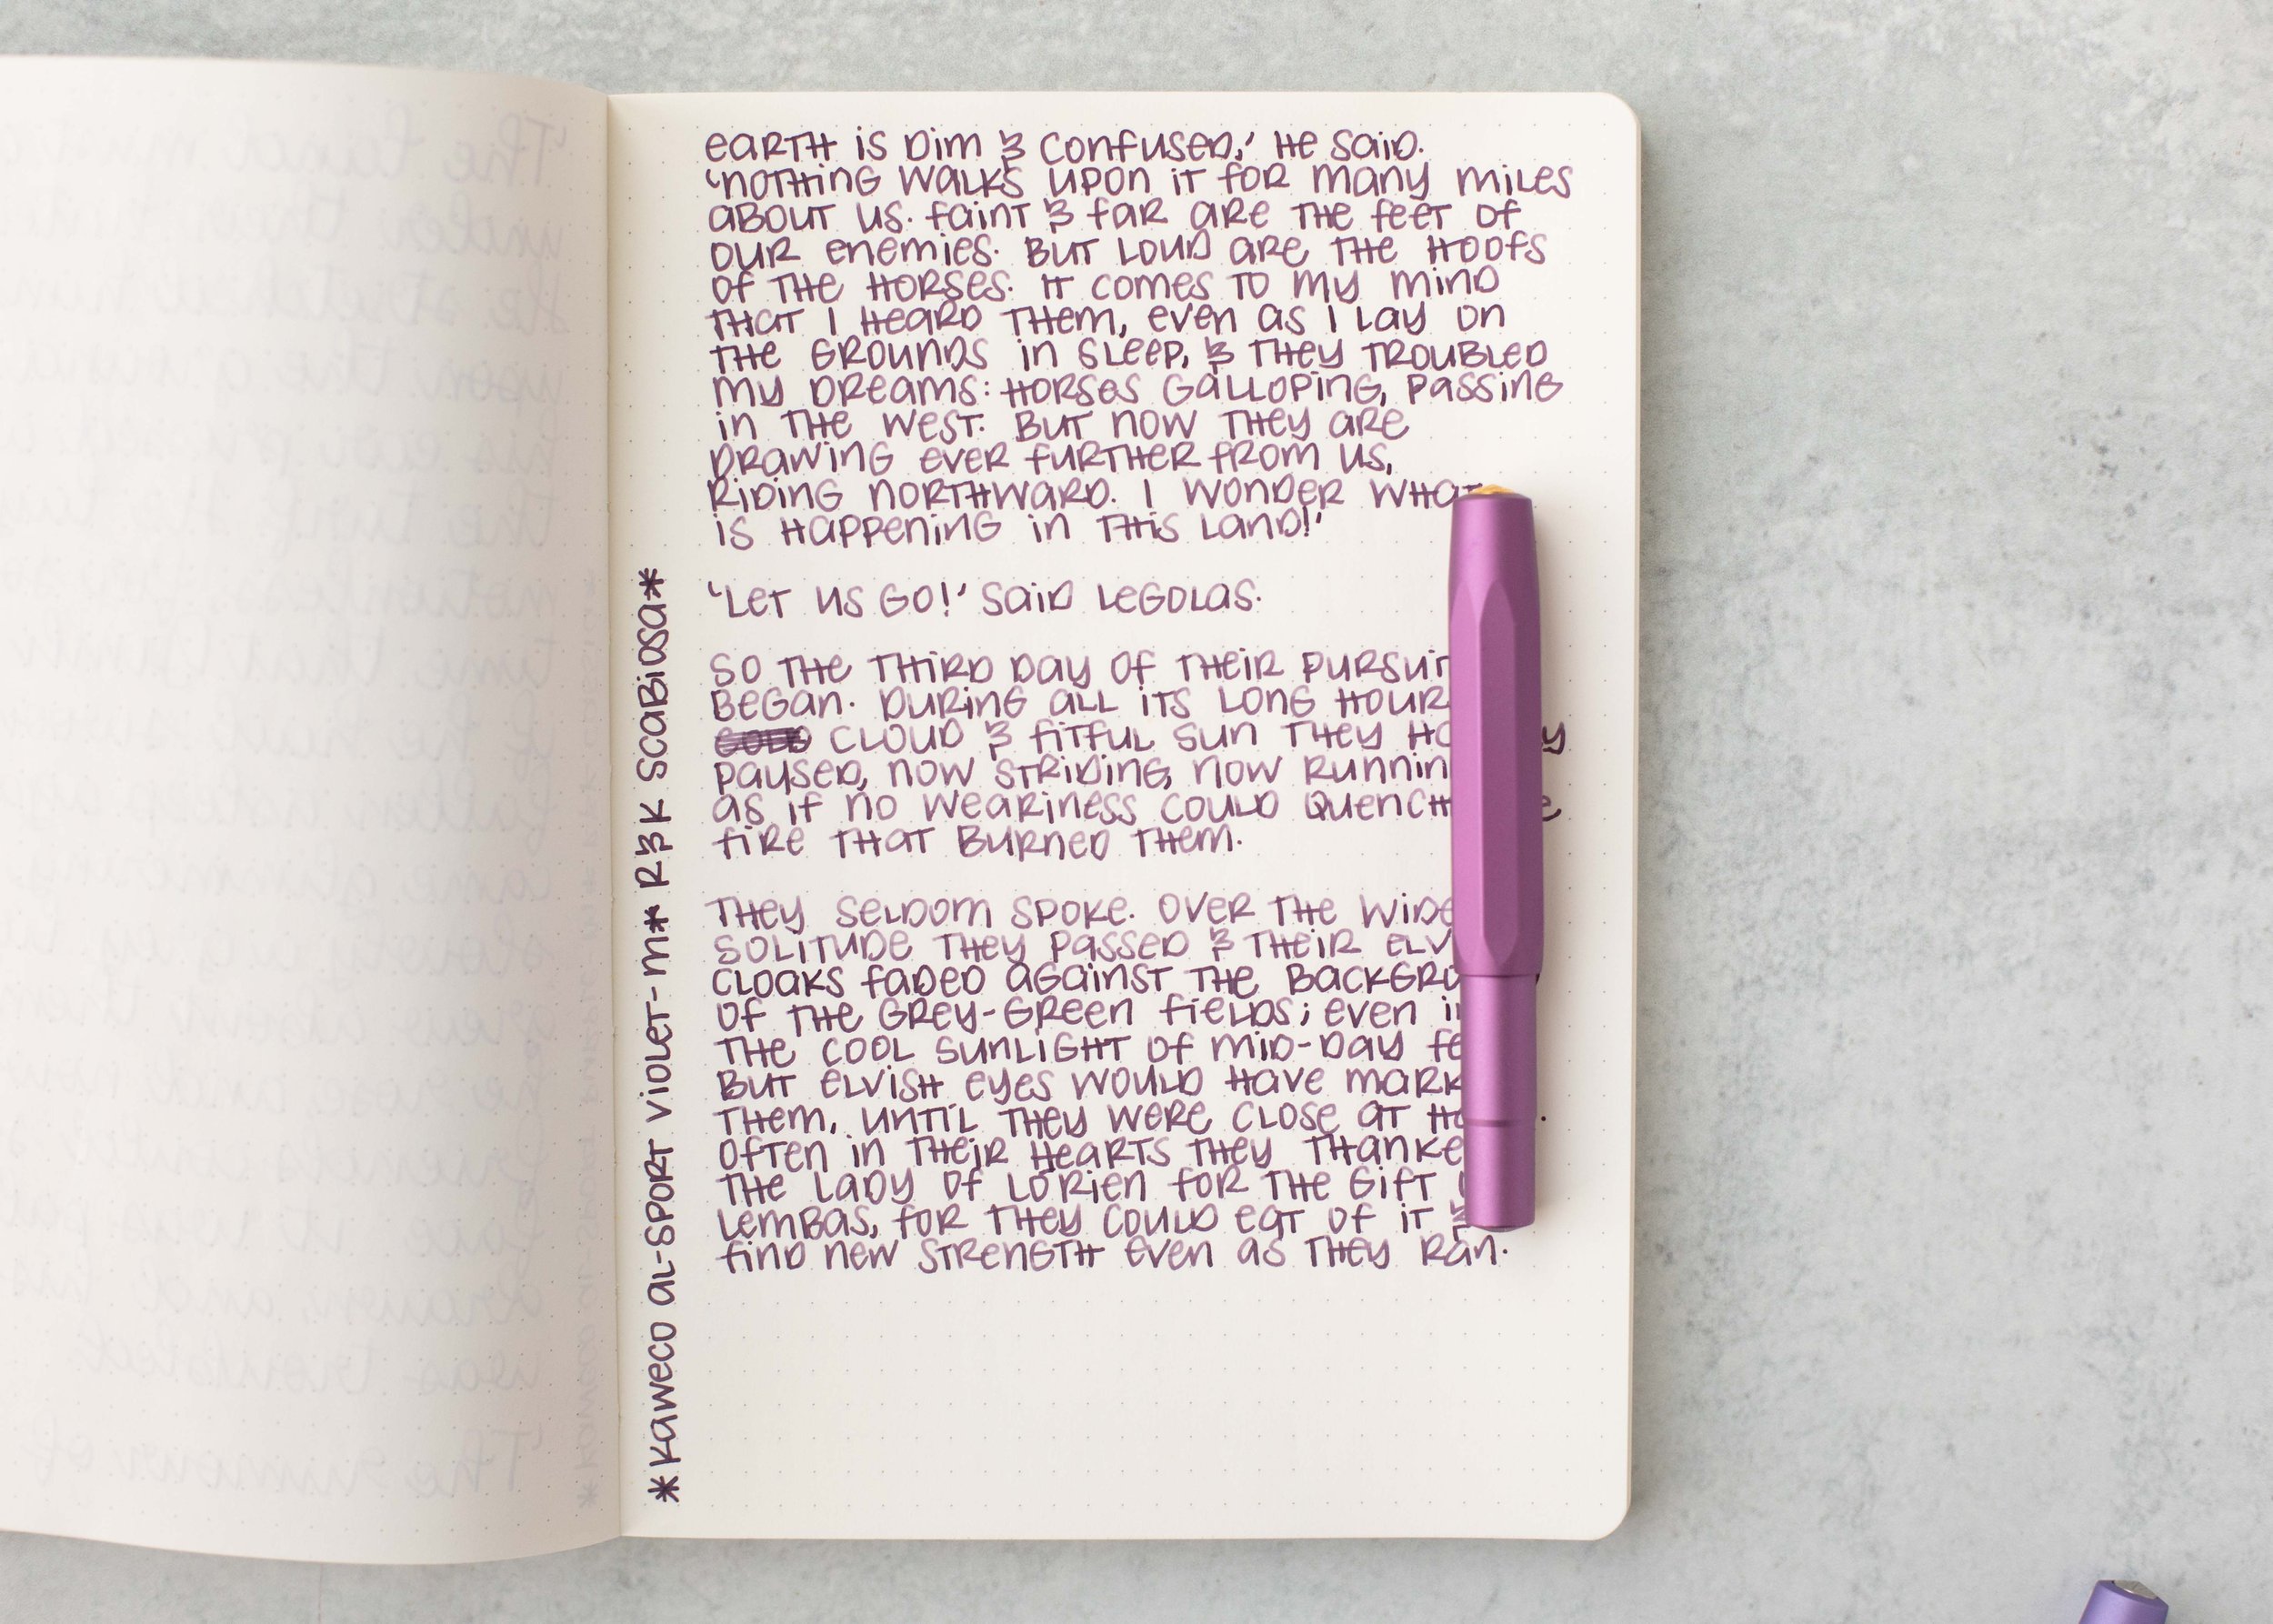 EARTH IS DIM & CONFUSED,' HE SAID.
'NOTHING WALKS UPON IT FOR MANY MILES
ABOUT US. FAINT & FAR ARE THE FEET OF
OUR ENEMIES. BUT LOUD ARE THE HOOFS
OF THE HORSES. IT COMES TO MY MIND
THAT I HEARD THEM, EVEN AS I LAY ON
THE GROUNDS IN SLEEP, & THEY TROUBLED
MY DREAMS: HORSES GALLOPING, PASSING
IN THE WEST. BUT NOW THEY ARE
DRAWING EVER FURTHER FROM US,
RIDING NORTHWARD. I WONDER WHAT
IS HAPPENING IN THIS LAND!'
'LET US GO!' SAID LEGOLAS.
SO THE THIRD DAY OF THEIR PURSUIT
BEGAN. DURING ALL ITS LONG HOUR
CLOUD & FITFUL SUN THEY
PAUSED, NOW STRIDING, NOW RUNNIN
AS IF NO WEARINESS COULD QUENCH
FIRE THAT BURNED THEM.
THEY SELDOM SPOKE. OVER THE WIDE
SOLITUDE THEY PASSED & THEIR ELV
CLOAKS FADED AGAINST THE BACKGRO
OF THE GREY-GREEN FIELDS; EVEN IN
THE COOL SUNLIGHT OF MID-DAY FE
BUT ELVISH EYES WOULD HAVE MARK
THEM, UNTIL THEY WERE CLOSE AT HA
OFTEN IN THEIR HEARTS THEY THANKE
THE LADY OF LÓRIEN FOR THE GIFT
LEMBAS, FOR THEY COULD EAT OF IT &
FIND NEW STRENGTH EVEN AS THEY RAN.
*KAWECO AL-SPORT VIOLET-M* R&K SCABIOSA*